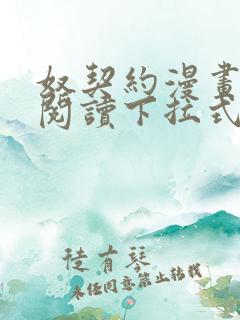 奴契約漫畫
閱讀下拉式
徒有琴
未經同意禁止轉載